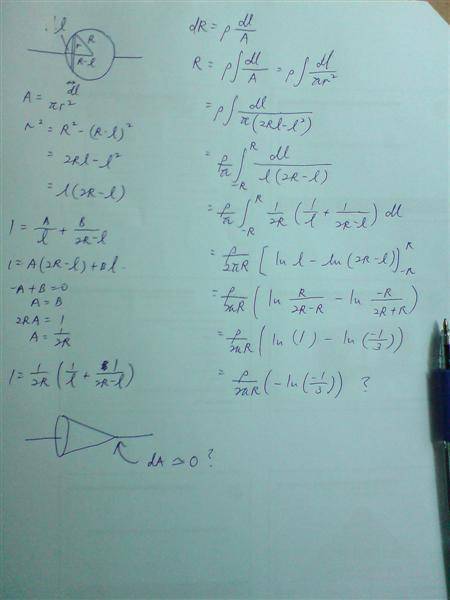 l
R
r
R-l
dl
A = πr²
r² = R² - (R-l)²
= 2Rl - l²
= l(2R-l)
1 = A/l + B/2R-l
1 = A(2R-l) + Bl
-A+B=0
A = B
2RA = 1
A = 1/2R
1 = 1/2R (1/l + 1/2R-l)
dR = ρ dl/A
R = ρ∫ dl/A = ρ∫ dl/πr²
= ρ∫ dl/π(2Rl-l²)
= ρ/π ∫_{-R}^{R} dl/l(2R-l)
= ρ/π ∫_{-R}^{R} 1/2R (1/l + 1/2R-l) dl
= ρ/2πR [ln l - ln (2R-l)]_{-R}^{R}
= ρ/2πR (ln R/2R-R - ln -R/2R+R)
= ρ/2πR (ln (1) - ln(-1/3))
= ρ/2πR (-ln(-1/3)) ?
dA ≃ 0 ?